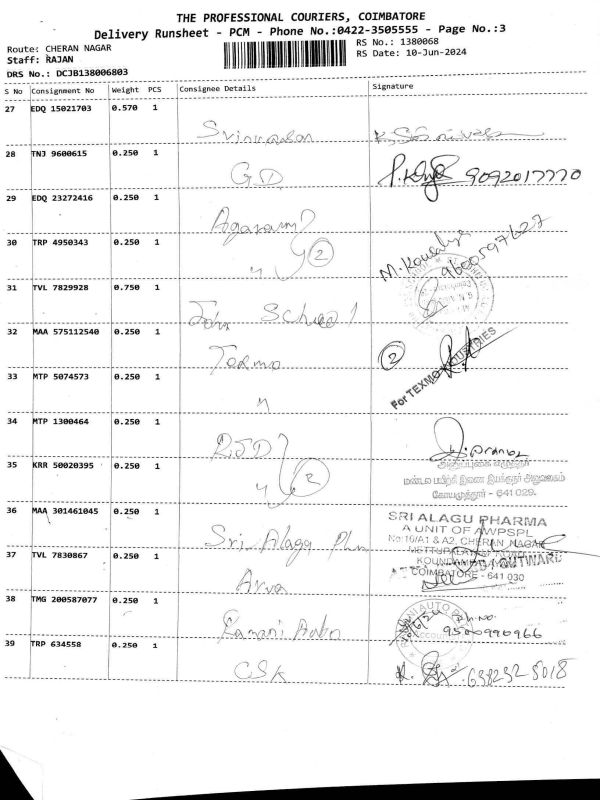 THE PROFESSIONAL COURIERS, COIMBATORE
Delivery Runsheet - PCM - Phone No.:0422-3505555 - Page No.:3
Route: CHERAN NAGAR
RS No.: 1380068
Staff: RAJAN
RS Date: 10-Jun-2024
DRS No.: DCJB138006803
S No Consignment No Weight PCS Consignee Details Signature
27 EDQ 15021703 0.570 1
28 TNJ 9600615 0.250 1
GD 9092017770
29 EDQ 23272416 0.250 1
30 TRP 4950343 0.250 1
2 M. Kousalya
9600597627
31 TVL 7829928 0.750 1
John School
32 MAA 575112540 0.250 1
Texmo 2
For TEXMO INDUSTRIES
33 MTP 5074573 0.250 1
34 MTP 1300464 0.250 1
RJD
35 KRR 50020395 0.250 1
2
மண்டல பயிற்சி இணை இயக்குநர் அலுவலகம்
கோயமுத்தூர் - 641 029.
36 MAA 301461045 0.250 1
Sri Alagu Phm
SRI ALAGU PHARMA
A UNIT OF AWPSPL
No:10/A1 & A2, CHERAN NAGAR
METTUPALAYAM ROAD
37 TVL 7830867 0.250 1
OUTWARD
COIMBATORE - 641 030
38 TMG 200587077 0.250 1
Ramani Auto
Ph.No.
9500990966
39 TRP 634558 0.250 1
CSK
638232 8018